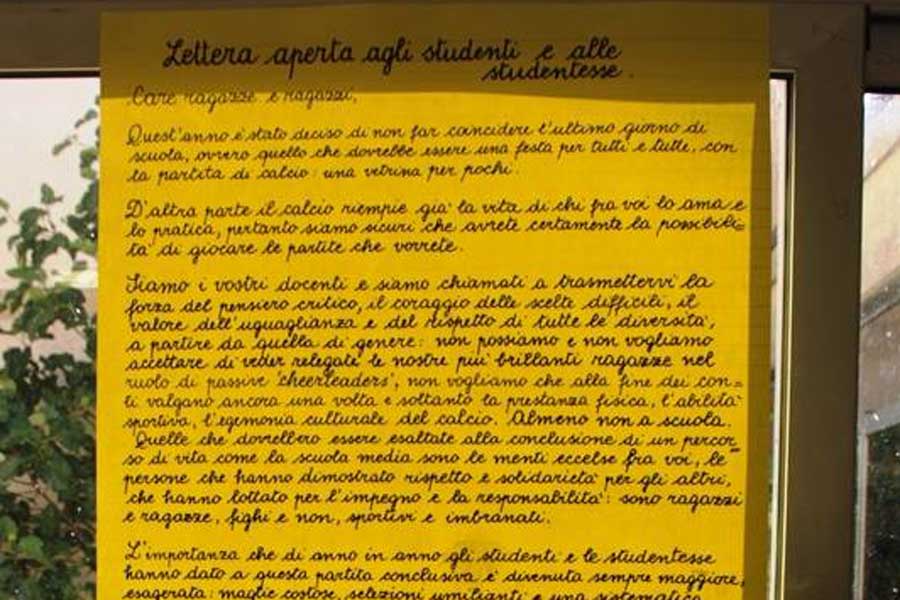 Lettera aperta agli studenti e alle
studentesse.
Care ragazze e ragazzi,
Quest'anno è stato deciso di non far coincidere l'ultimo giorno di
scuola, ovvero quello che dovrebbe essere una festa per tutti e tutte, con
la partita di calcio: una vetrina per pochi.
D'altra parte il calcio riempie già la vita di chi fra voi lo ama e
lo pratica, pertanto siamo sicuri che avrete certamente la possibili=
tà di giocare le partite che vorrete.
Siamo i vostri docenti e siamo chiamati a trasmettervi la
forza del pensiero critico, il coraggio delle scelte difficili, il
valore dell'uguaglianza e del rispetto di tutte le diversità,
a partire da quella di genere: non possiamo e non vogliamo
accettare di veder relegate le nostre più brillanti ragazze nel
ruolo di passive 'cheerleaders', non vogliamo che alla fine dei con=
ti valgano ancora una volta e soltanto la prestanza fisica, l'abilità
sportiva, l'egemonia culturale del calcio. Almeno non a scuola.
Quelle che dovrebbero essere esaltate alla conclusione di un percor
so di vita come la scuola media sono le menti eccelse fra voi, le
persone che hanno dimostrato rispetto e solidarietà per gli altri,
che hanno lottato per l'impegno e la responsabilità: sono ragazzi
e ragazze, fighi e non, sportivi e imbranati.
L'importanza che di anno in anno gli studenti e le studentesse
hanno dato a questa partita conclusiva è divenuta sempre maggiore,
esagerata: maglie costose, selezioni umilianti e una sistematica